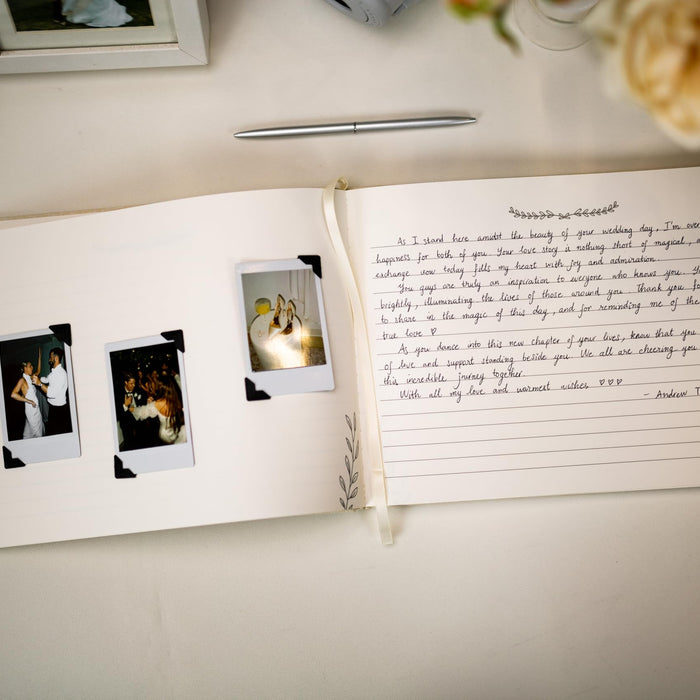 As I stand here amidst the beauty of your wedding day, I'm over
happiness for both of you. Your love story is nothing short of magical, a
exchange vow today fills my heart with joy and admiration.
You guys are truly an inspiration to everyone who knows you. Yo
brightly, illuminating the lives of those around you. Thank you fo
to share in the magic of this day, and for reminding me of the
true love ♡
As you dance into this new chapter of your lives, know that you
of love and support standing beside you. We all are cheering you
this incredible journey together.
With all my love and warmest wishes ♡♡♡
- Andrew T